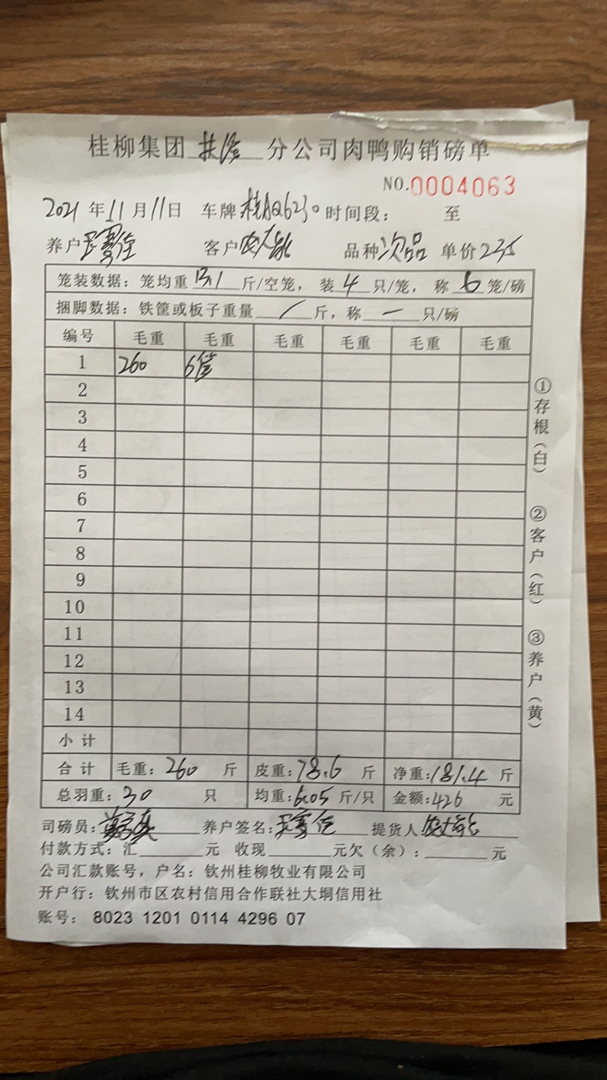 桂柳集团 扶隆 分公司肉鸭购销磅单
NO.0004063
2021年11月11日 车牌桂A026230 时间段： 至
养户 客户 品种次品 单价235
笼装数据：笼均重13.1斤/空笼，装4只/笼，称6笼/磅
捆脚数据：铁筐或板子重量 / 斤，称 一 只/磅
编号 毛重 毛重 毛重 毛重 毛重 毛重
1 260 6筐
2
3
4
5
6
7
8
9
10
11
12
13
14
小计
合计 毛重：260 斤 皮重：78.6 斤 净重：181.4 斤
总羽重：30 只 均重：6.05 斤/只 金额：426 元
司磅员： 养户签名： 提货人
付款方式：汇 元 收现 元欠（余）： 元
公司汇款账号，户名：钦州桂柳牧业有限公司
开户行：钦州市区农村信用合作联社大垌信用社
账号： 8023 1201 0114 4296 07
①存根（白）
②客户（红）
③养户（黄）